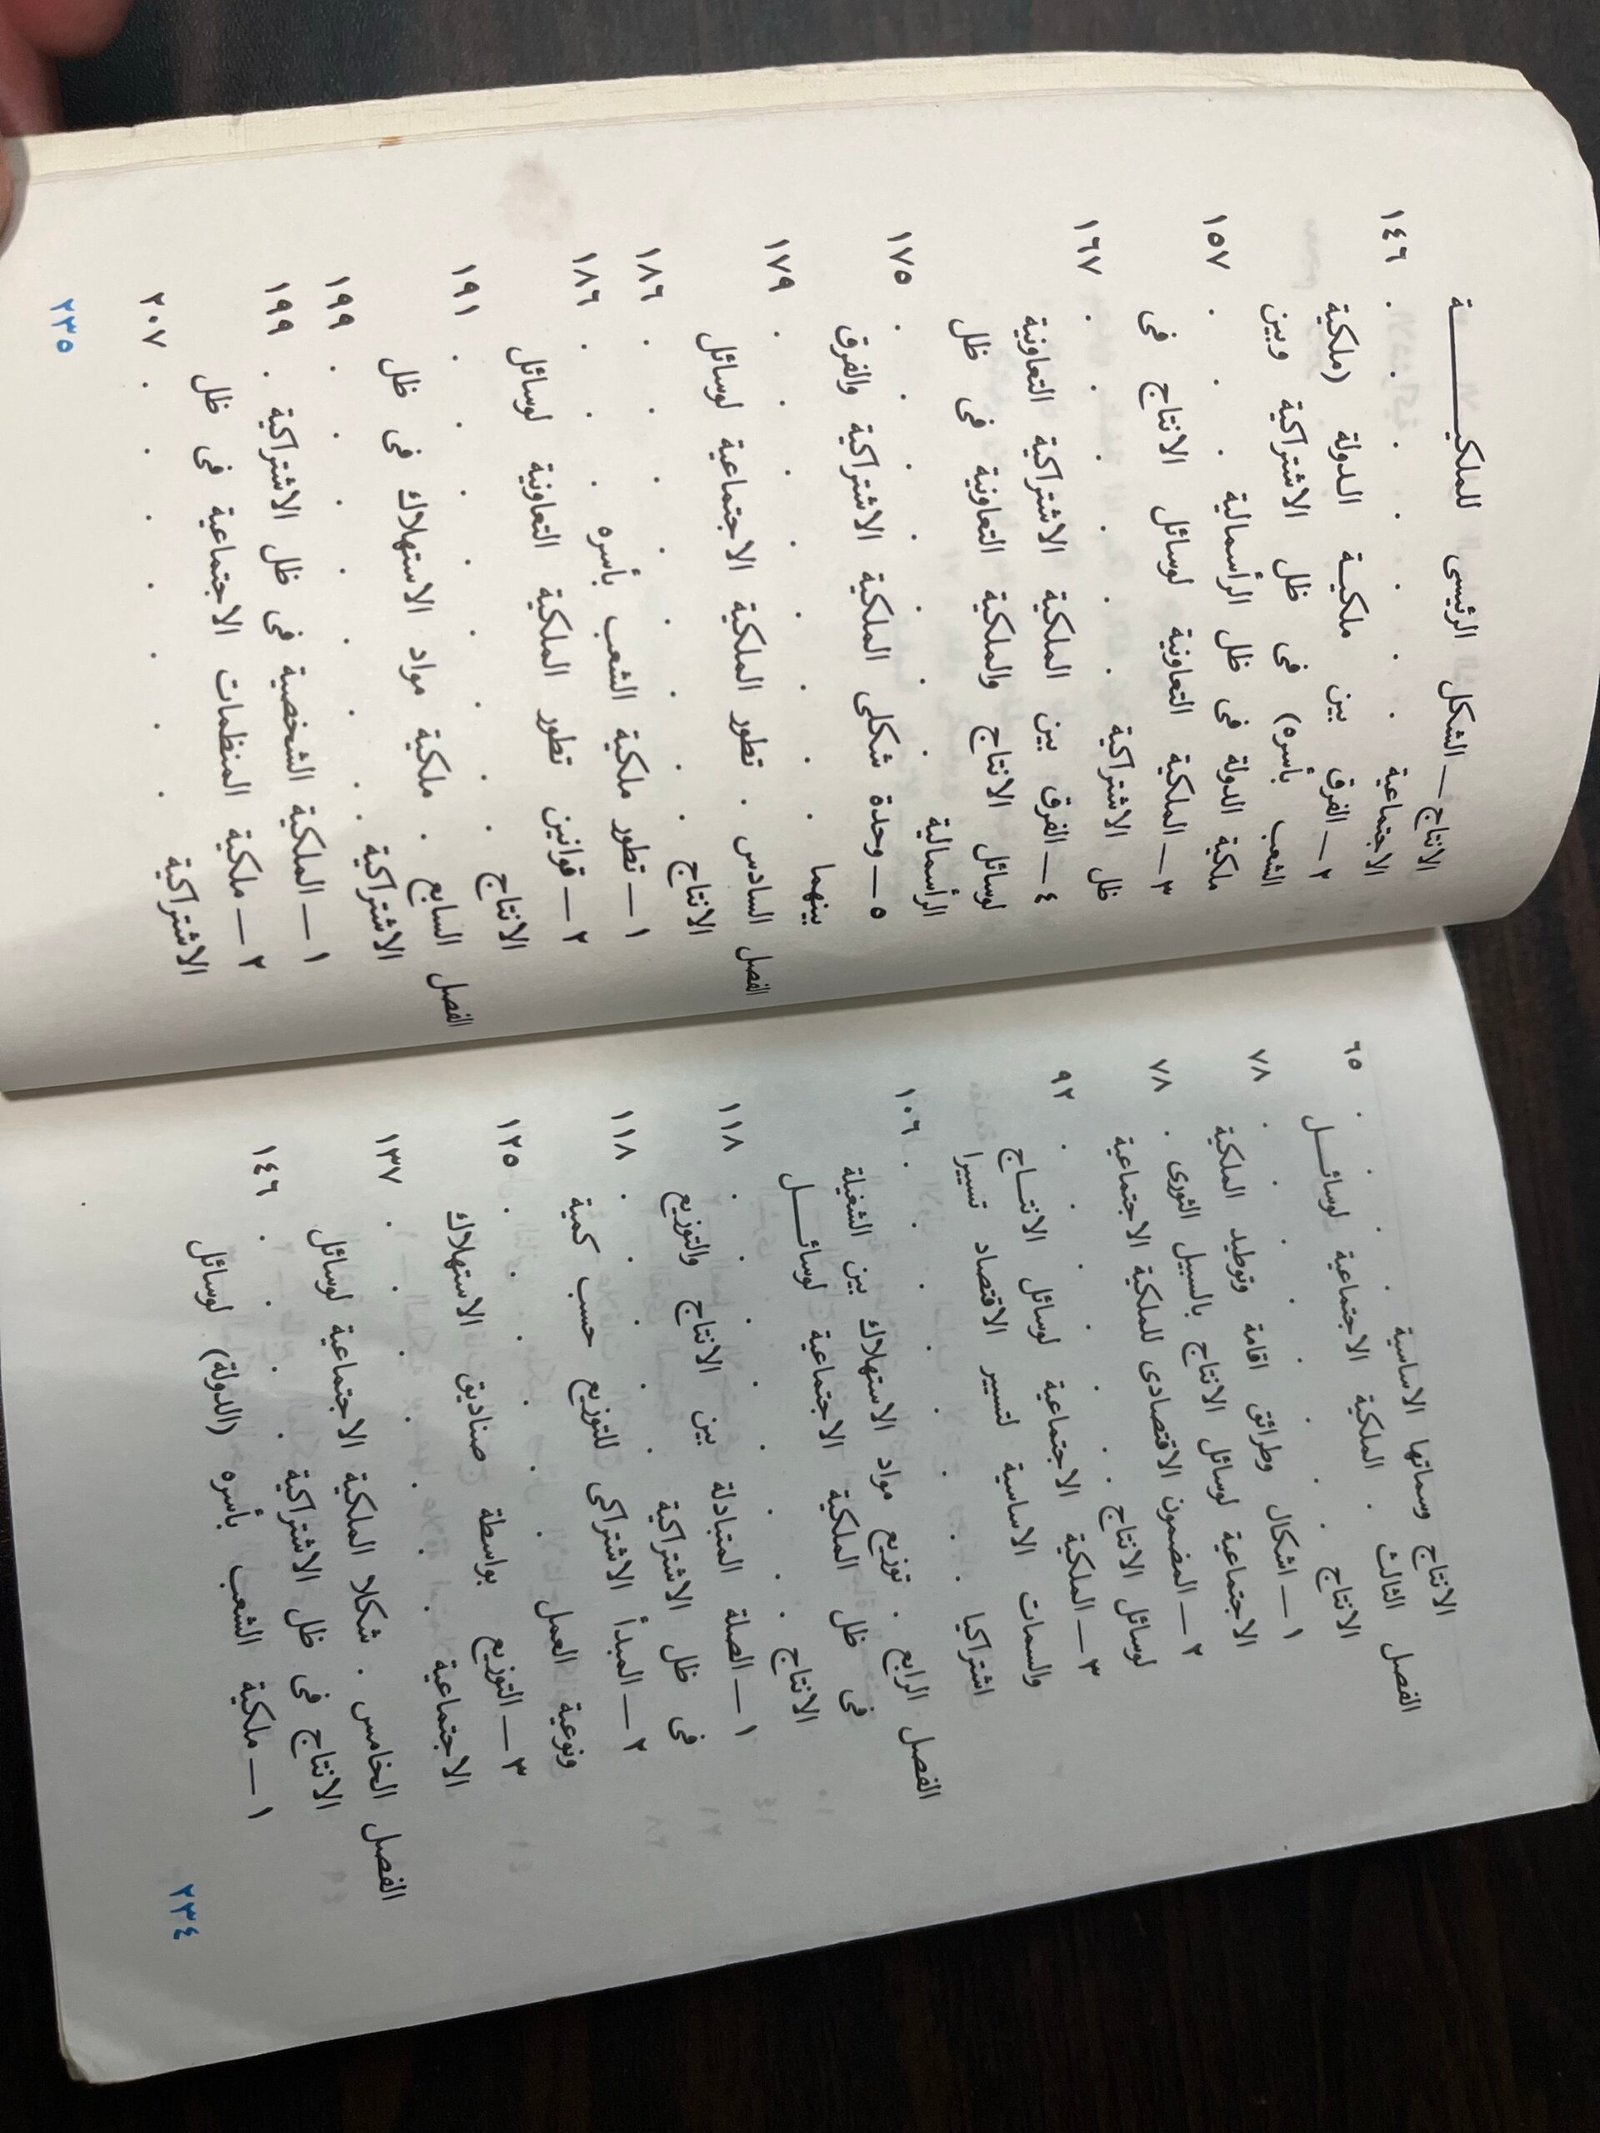 الانتاج وسماتها الاساسية . . . . ٦٥
الفصل الثالث . الملكية الاجتماعية لوسائل
الانتاج . . . . . . ٧٨
١ — اشكال وطرائق اقامة وتوطيد الملكية
الاجتماعية لوسائل الانتاج بالسبيل الثورى . ٧٨
٢ — المضمون الاقتصادى للملكية الاجتماعية
لوسائل الانتاج . . . . . ٩٢
٣ — الملكية الاجتماعية لوسائل الانتاج
والسمات الاساسية لتسيير الاقتصاد تسييرا
اشتراكيا . . . . . . ١٠٦
الفصل الرابع . توزيع مواد الاستهلاك بين الشغيلة
فى ظل الملكية الاجتماعية لوسائل
الانتاج . . . . . . ١١٨
١ — الصلة المتبادلة بين الانتاج والتوزيع
فى ظل الاشتراكية . . . . ١١٨
٢ — المبدأ الاشتراكى للتوزيع حسب كمية
ونوعية العمل . . . . . ١٢٥
٣ — التوزيع بواسطة صناديق الاستهلاك
الاجتماعية . . . . . . ١٣٧
الفصل الخامس . شكلا الملكية الاجتماعية لوسائل
الانتاج فى ظل الاشتراكية . . . . ١٤٦
١ — ملكية الشعب بأسره (الدولة) لوسائل
٢٣٤
الانتاج — الشكل الرئيسى للملكية
الاجتماعية . . . . . . ١٤٦
٢ — الفرق بين ملكية الدولة (ملكية
الشعب بأسره) فى ظل الاشتراكية وبين
ملكية الدولة فى ظل الرأسمالية . . . ١٥٧
٣ — الملكية التعاونية لوسائل الانتاج فى
ظل الاشتراكية . . . . . ١٦٧
٤ — الفرق بين الملكية الاشتراكية التعاونية
لوسائل الانتاج والملكية التعاونية فى ظل
الرأسمالية . . . . . . ١٧٥
٥ — وحدة شكلى الملكية الاشتراكية والفرق
بينهما . . . . . . . ١٧٩
الفصل السادس . تطور الملكية الاجتماعية لوسائل
الانتاج . . . . . . ١٨٦
١ — تطور ملكية الشعب بأسره . . . ١٨٦
٢ — قوانين تطور الملكية التعاونية لوسائل
الانتاج . . . . . . ١٩١
الفصل السابع . ملكية مواد الاستهلاك فى ظل
الاشتراكية . . . . . . ١٩٩
١ — الملكية الشخصية فى ظل الاشتراكية . ١٩٩
٢ — ملكية المنظمات الاجتماعية فى ظل
الاشتراكية . . . . . . ٢٠٧
٢٣٥